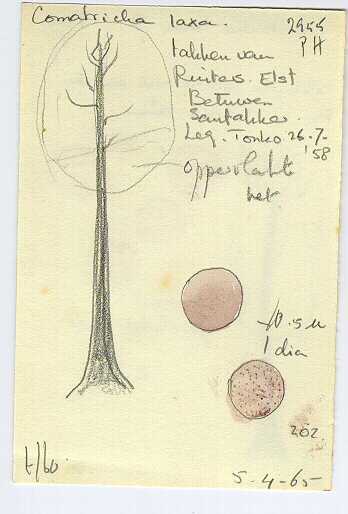 Comatricha laxa.
2955
PH
takken van
Ruiters. Elst
Betuwen
Leg. Tonko 26-7-
'58
oppervlakte
net
10.5 µ
1 dia
202
5-4-65